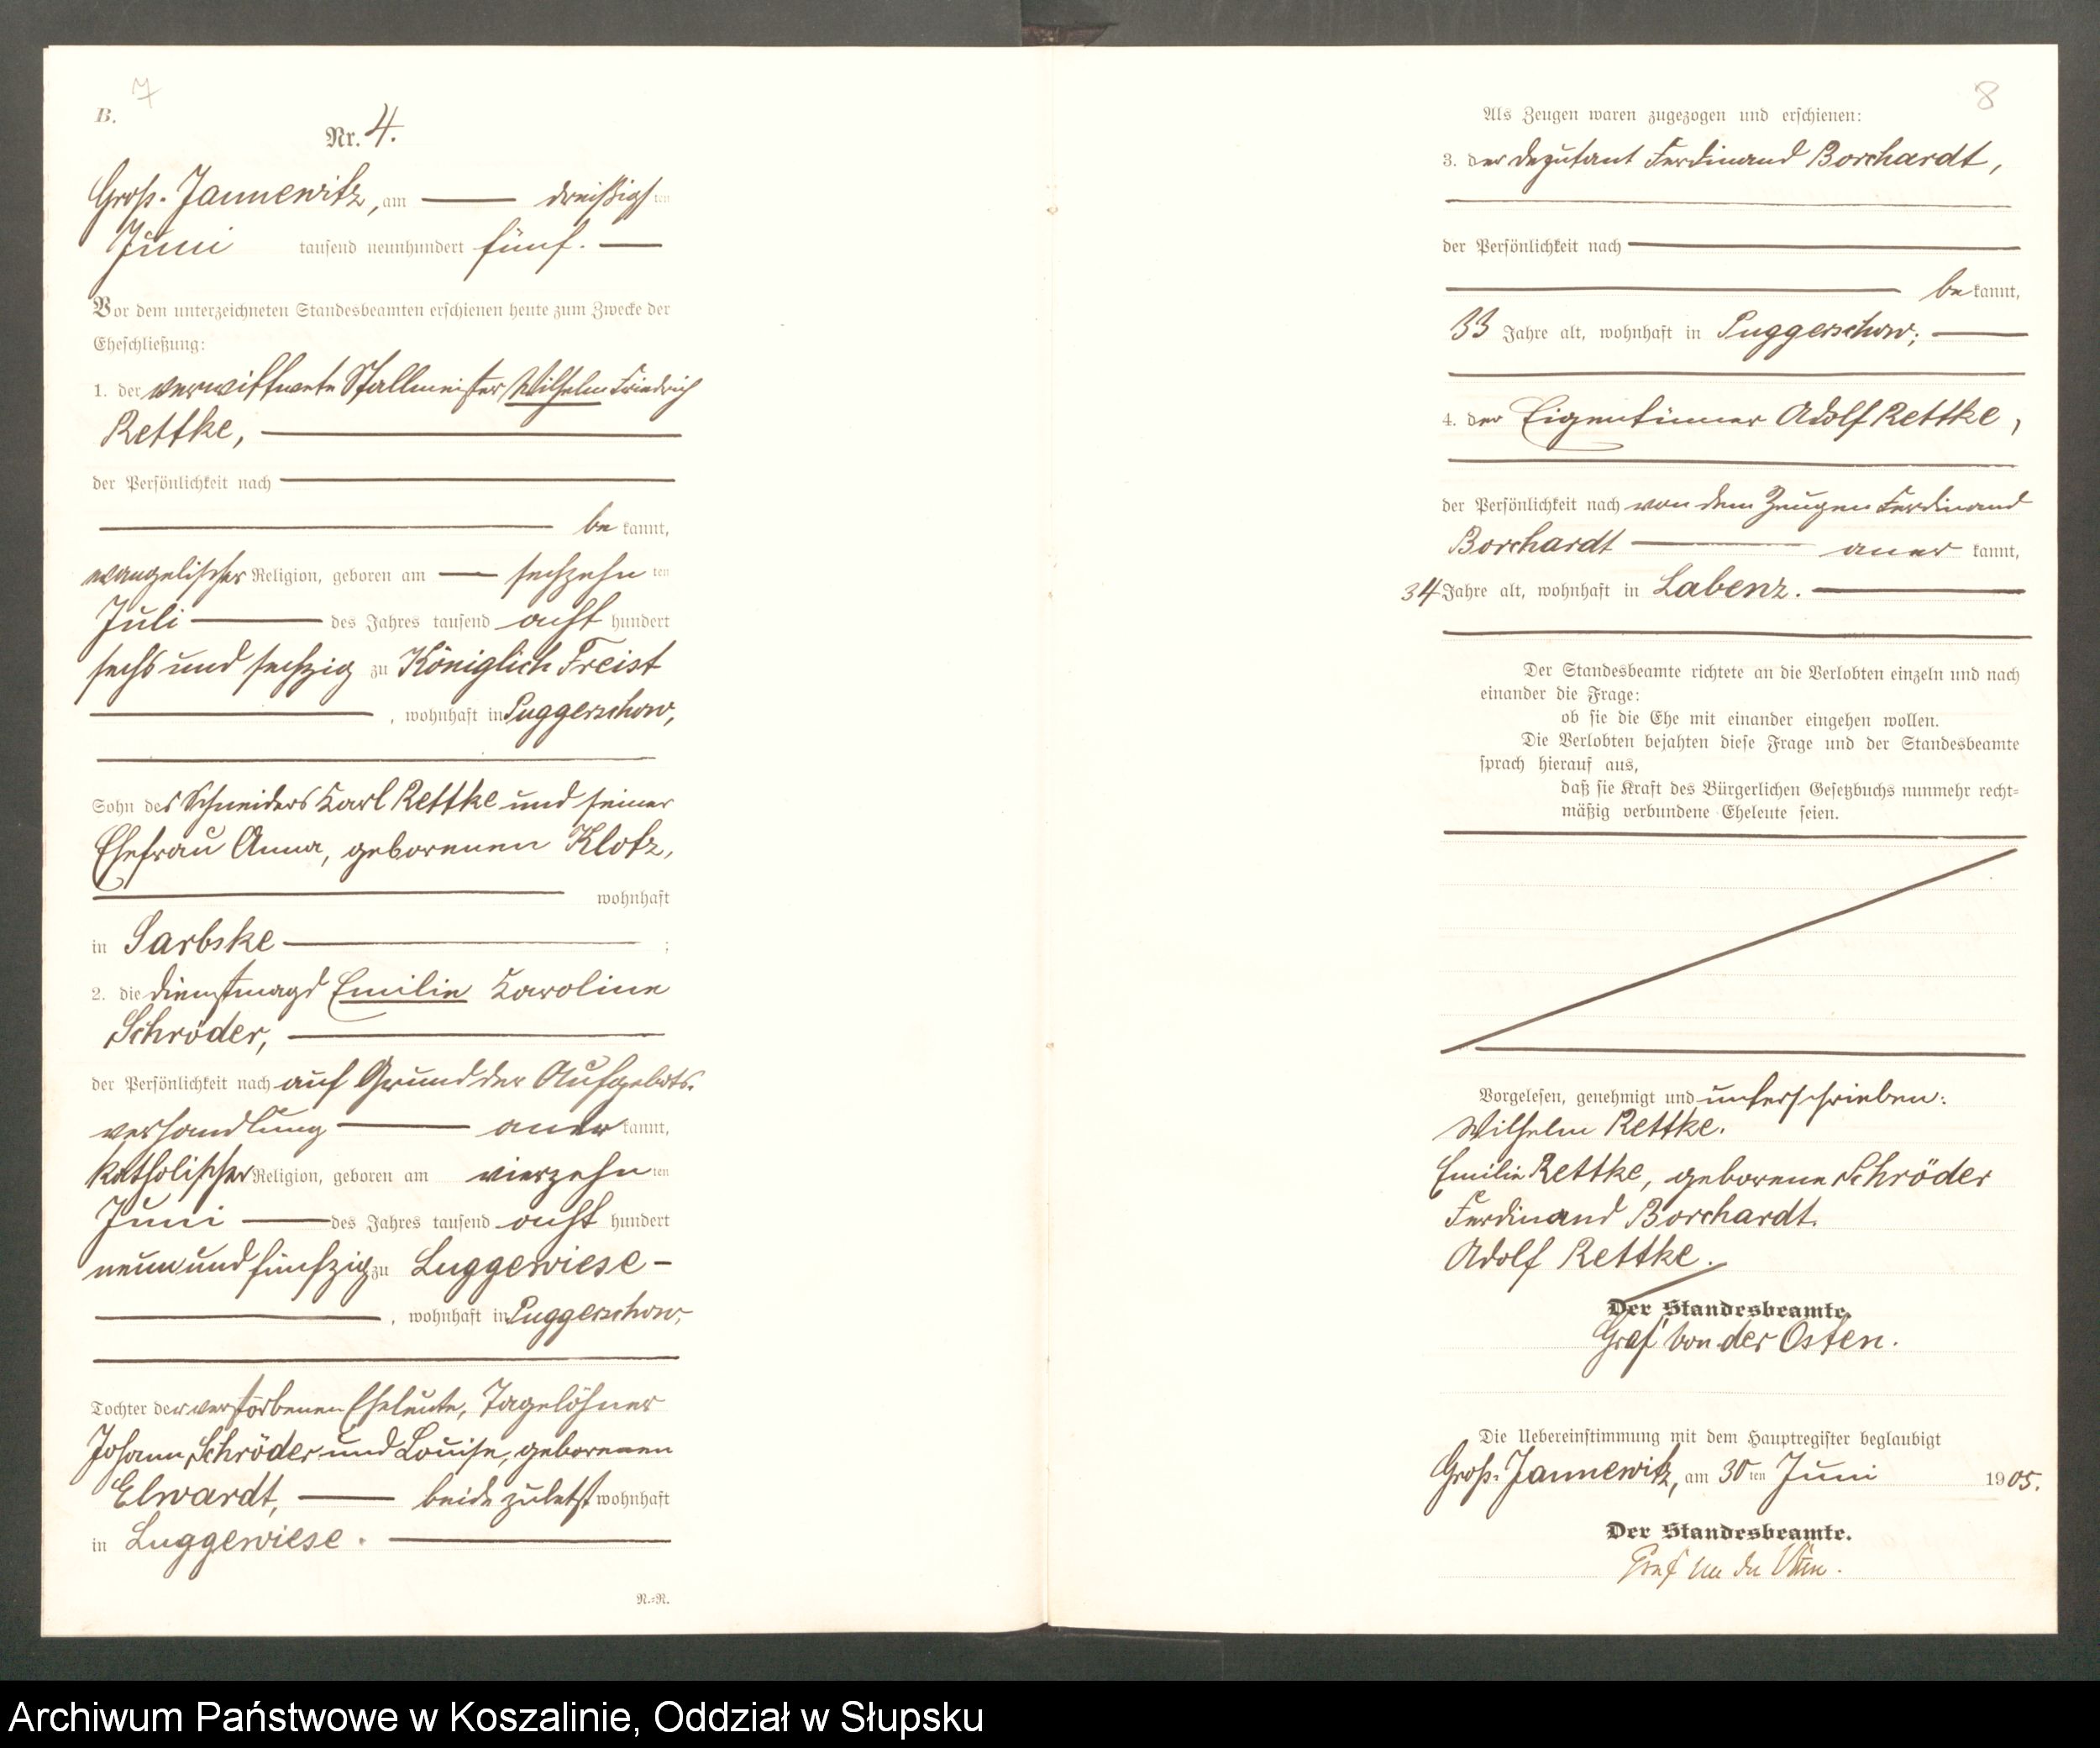 7
B.
Nr. 4.
Groß-Jannewitz, am dreißigsten
Juni tausend neunhundert fünf.
Vor dem unterzeichneten Standesbeamten erschienen heute zum Zwecke der
Eheschließung:
1. der verwittwete Stallmeister Wilhelm Friedrich
Rettke,
der Persönlichkeit nach
be kannt,
evangelischer Religion, geboren am sechzehn ten
Juli des Jahres tausend acht hundert
sechs und sechzig zu Königlich Freist
, wohnhaft in Puggerschow,
Sohn des Schneiders Karl Rettke und seiner
Ehefrau Anna, geborenen Klotz,
wohnhaft
in Sarbske ;
2. die Dienstmagd Emilie Karoline
Schröder,
der Persönlichkeit nach auf Grund der Aufgebots-
verhandlung aner kannt,
katholischer Religion, geboren am vierzehn ten
Juni des Jahres tausend acht hundert
neun und fünfzig zu Luggewiese -
, wohnhaft in Puggerschow,
Tochter der verstorbenen Eheleute, Tagelöhner
Johann Schröder und Louise, geborenen
Elwardt, beide zuletzt wohnhaft
in Luggewiese.
N.=N.
8
Als Zeugen waren zugezogen und erschienen:
3. der Deputant Ferdinand Borchardt,
der Persönlichkeit nach
be kannt,
33 Jahre alt, wohnhaft in Puggerschow;
4. der Eigentümer Adolf Rettke,
der Persönlichkeit nach von dem Zeugen Ferdinand
Borchardt aner kannt,
34 Jahre alt, wohnhaft in Labenz.
Der Standesbeamte richtete an die Verlobten einzeln und nach
einander die Frage:
ob sie die Ehe mit einander eingehen wollen.
Die Verlobten bejahten diese Frage und der Standesbeamte
sprach hierauf aus,
daß sie Kraft des Bürgerlichen Gesetzbuchs nunmehr recht=
mäßig verbundene Eheleute seien.
Vorgelesen, genehmigt und unterschrieben:
Wilhelm Rettke.
Emilie Rettke, geborene Schröder
Ferdinand Borchardt.
Adolf Rettke.
Der Standesbeamte.
Graf von der Osten.
Die Uebereinstimmung mit dem Hauptregister beglaubigt
Groß-Jannewitz, am 30 ten Juni 1905.
Der Standesbeamte.
Graf von der Osten.
Archiwum Państwowe w Koszalinie, Oddział w Słupsku